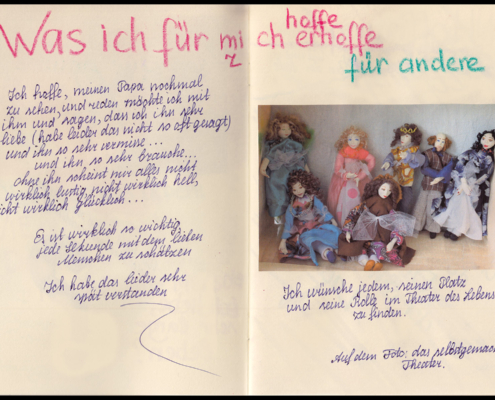 Was ich für mich erhoffe
hoffe
für andere
Ich hoffe, meinen Papa nochmal
zu sehen, und reden möchte ich mit
ihm und sagen, das ich ihn sehr
liebe (habe leider das nicht so oft gesagt)
und ihn so sehr vermine...
und ihn so sehr brauche...
ohne ihn scheint mir alles nicht
wirklich lustig, nicht wirklich hell,
nicht wirklich glücklich...
Es ist wirklich so wichtig,
jede Sekunde mit dem lieben
Menschen zu schätzen
Ich habe das lieder sehr
spät verstanden
Ich wünsche jedem, seinen Platz
und seine Rolle im Theater des Lebens
zu finden.
Auf dem Foto: das selbstgemach
Theater.